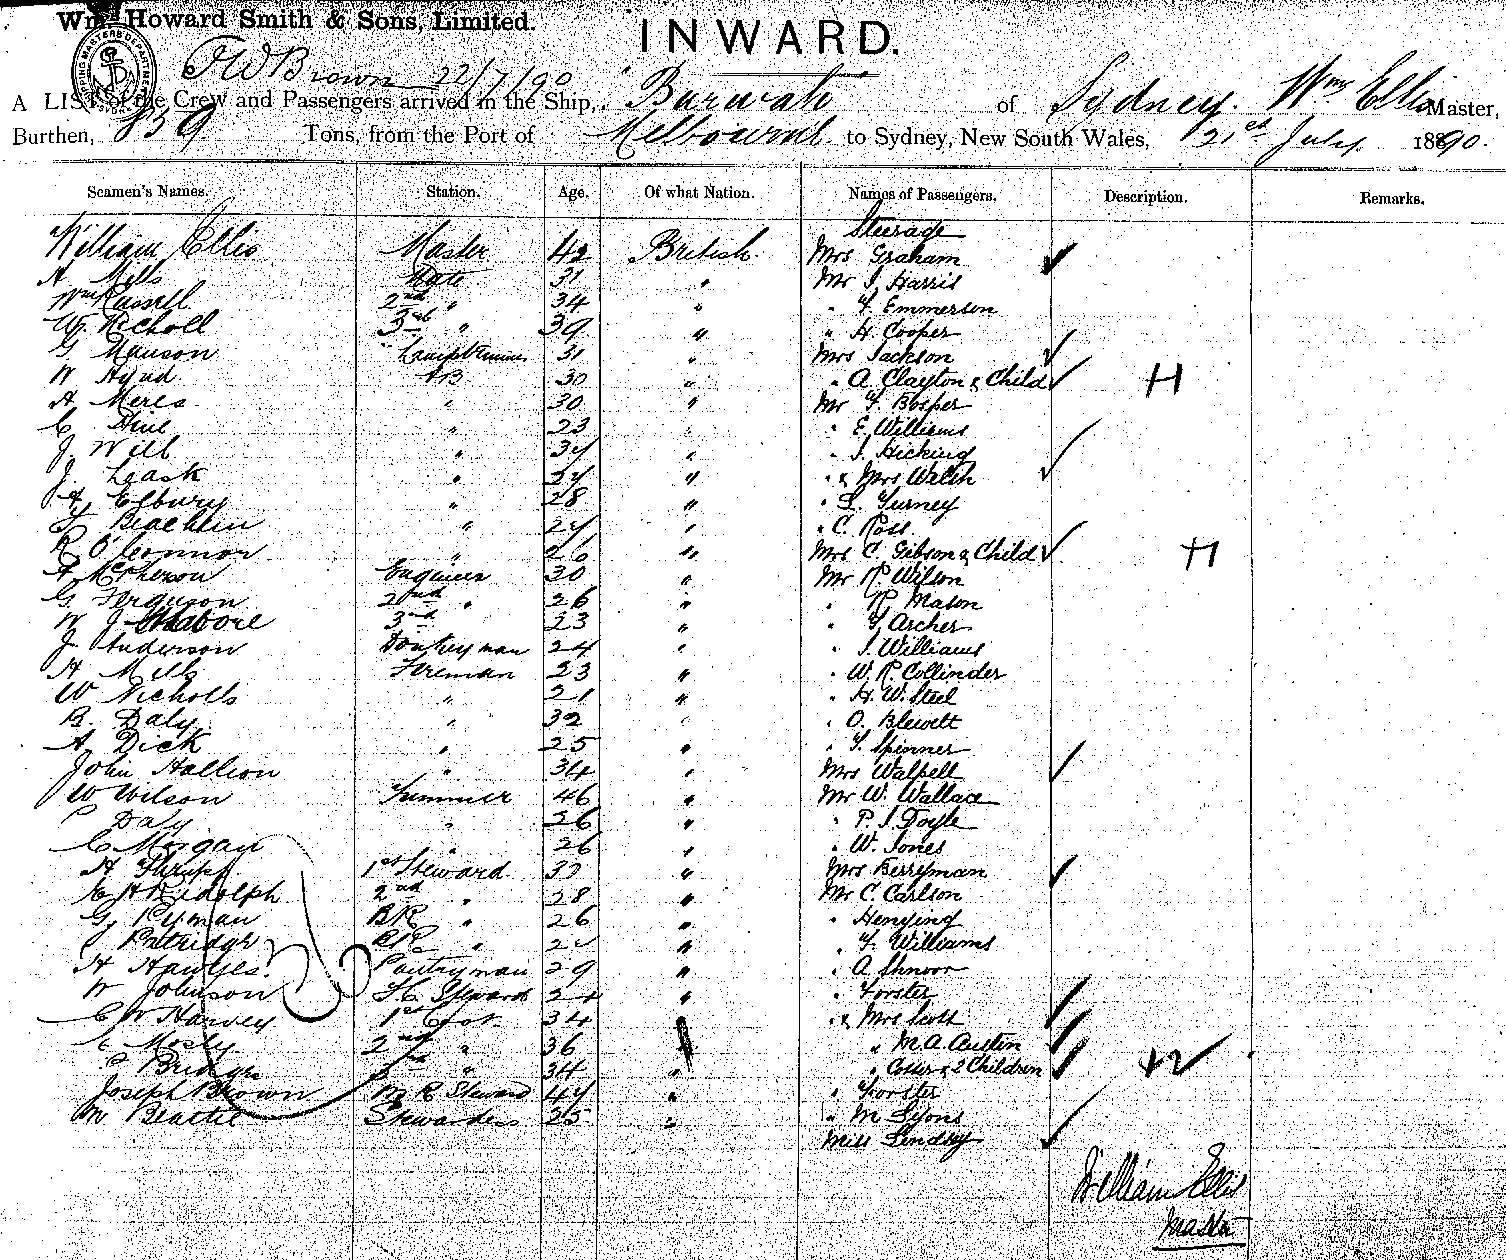 Wm. Howard Smith & Sons, Limited.
INWARD.
22/7/90
A LIST of the Crew and Passengers arrived in the Ship, Burwah of Sydney. Wm Ellis Master,
Burthen, 839 Tons, from the Port of Melbourne to Sydney, New South Wales, 21st July 1890.
Seamen's Names. Station. Age. Of what Nation. Names of Passengers. Description. Remarks.
Steerage
William Ellis Master 42 British Mrs Graham
A Mills Mate 31 " Mr J. Harris
Wm Russell 2nd " 34 " " F. Emmerson
W. Nicholl 3rd " 39 " " H. Cooper
G. Manson Lamptrimmer 31 " Mrs Jackson
W Hynd AB 30 " " A. Clayton & Child H
A Meres " 30 " Mr F. Bosper
C Hine " 23 " " E. Williams
J. Will " 34 " " J. Hicking
J. Leask " 24 " " & Mrs Welsh
" 28 " " L. Gurney
" 24 " " C. Ross
R O'Connor " 26 " Mrs C. Gibson & Child H
A McPherson Engineer 30 " Mr R. Wilson
G. Ferguson 2nd " 26 " " R. Mason
W J 3rd 23 " " G. Archer
J Anderson Donkeyman 24 " " J. Williams
A Mills Fireman 23 " " W. R. Collinder
W Nicholls " 21 " " H. W. Steel
B. Daly " 32 " " O. Blewett
A Dick " 25 " " T. Spinner
John Hallion " 34 " Mrs Walpell
W Wilson Trimmer 46 " Mr W. Wallace
Daly " 26 " " P. J. Doyle
C Morgan " 26 " " W. Jones
A Thrupp 1st Steward 30 " Mrs Berryman
C H Ridolph 2nd " 28 " Mr C. Carlson
G Pyman BR " 26 " " Henying
J Patridge " " " F. Williams
A Hawges Pantryman 29 " " A. Shnoor
W Johnson Steward 24 " " Forster
C W Harvey 1st Cook 34 " " & Mrs Scott
Mosly 2nd " 36 " " M. A. Austin
C Bridge 3rd " 34 " " & 2 Children +2
Joseph Brown M R Steward 44 " " Forster
M Beattie Stewardess 25 " " M Lyons
Miss Lindsay
William Ellis
Master